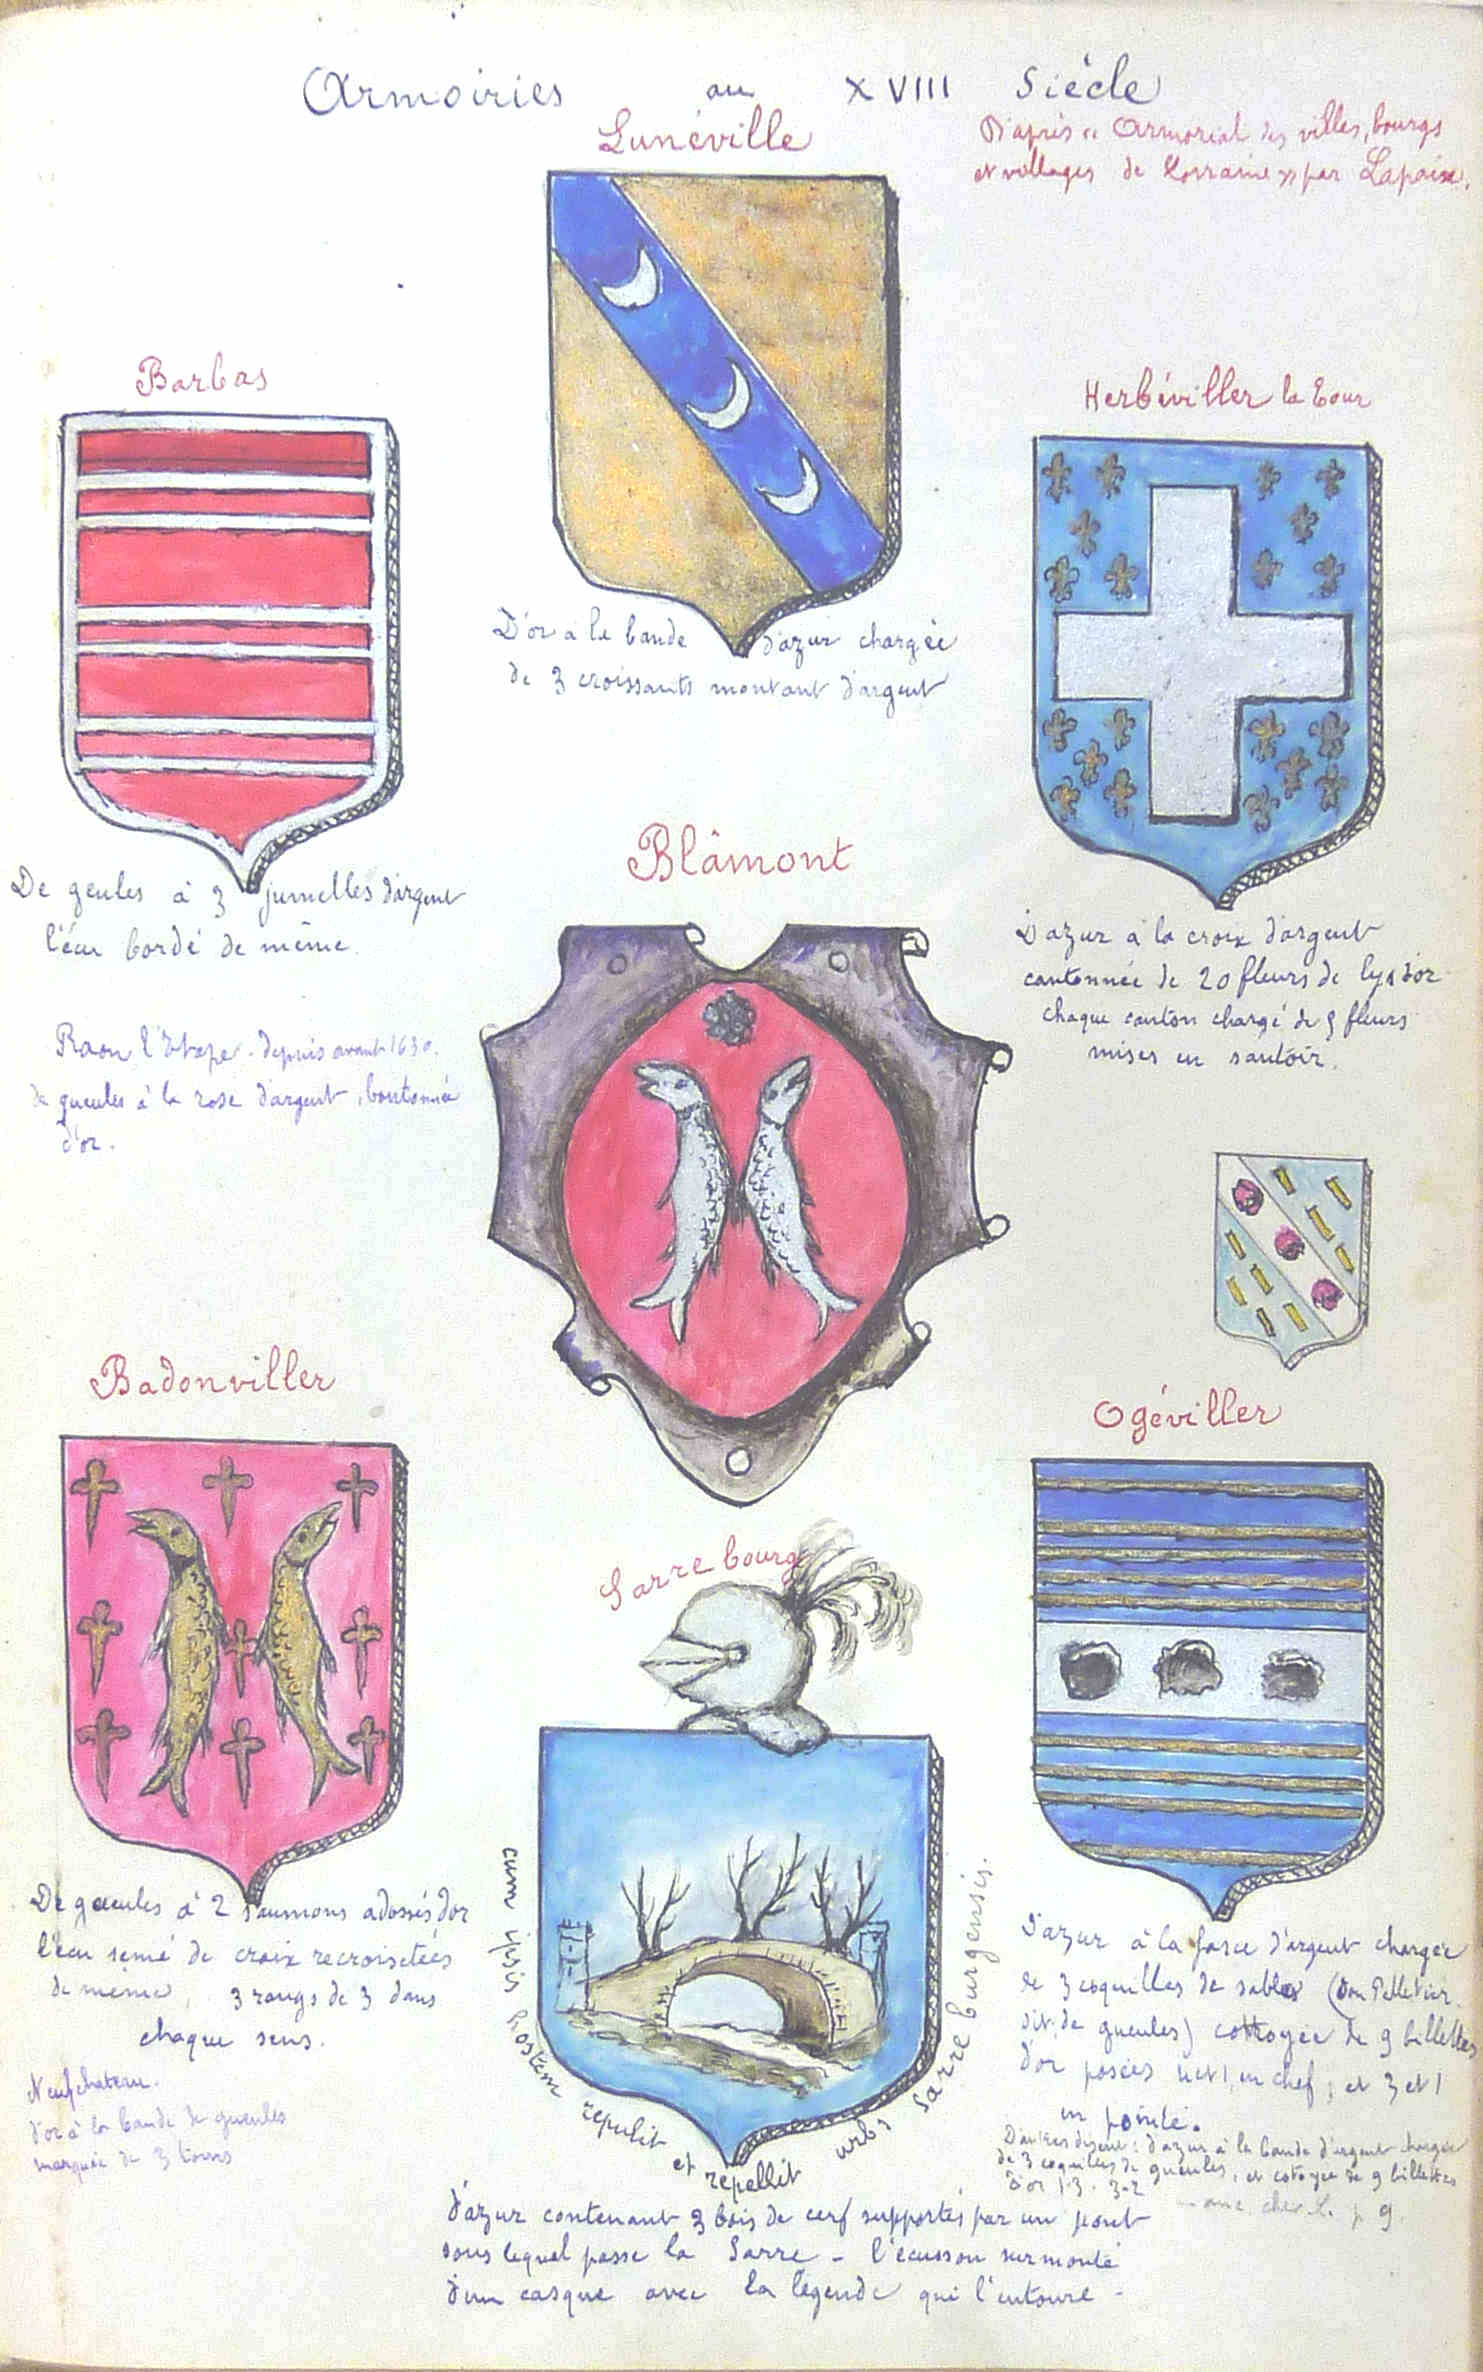 Armoiries au XVIII Siècle
D'après « Armorial des villes, bourgs
et villages de Lorraine » par Lapaix.
Lunéville
D'or à la bande d'azur chargée
de 3 croissants montant d'argent
Barbas
De geules à 3 jumelles d'argent
l'écu bordé de même.
Herbéviller la Tour
D'azur à la croix d'argent
cantonnée de 20 fleurs de lys d'or
chaque canton chargé de 5 fleurs
mises en sautoir.
Blâmont
Raon l'Etape - depuis avant 1630.
de gueules à la rose d'argent, boutonnée
d'or.
Badonviller
De gueules à 2 saumons adossés d'or
l'écu semé de croix recroisetées
de même, 3 rangs de 3 dans
chaque sens.
Neufchateau.
d'or à la bande de gueules
de 3 tours
Sarrebourg
cum ipsis hostem repulit et repellit urbs Sarreburgensis.
D'azur contenant 3 bois de cerf supportés par un pont
sous lequel passe la Sarre - l'écusson surmonté
d'un casque avec la légende qui l'entoure -
Ogéviller
D'azur à la fasce d'argent chargée
de 3 coquilles de sables (Dom Pelletier
dit, de gueules) cottoyée de 9 billettes
d'or posées 4 et 1, en chef, et 3 et 1
en pointe.
D'autres disent : d'azur à la bande d'argent chargée
de 3 coquilles de gueules, et cotoyée de 9 billettes
d'or 1-3. 3-2
p 9.